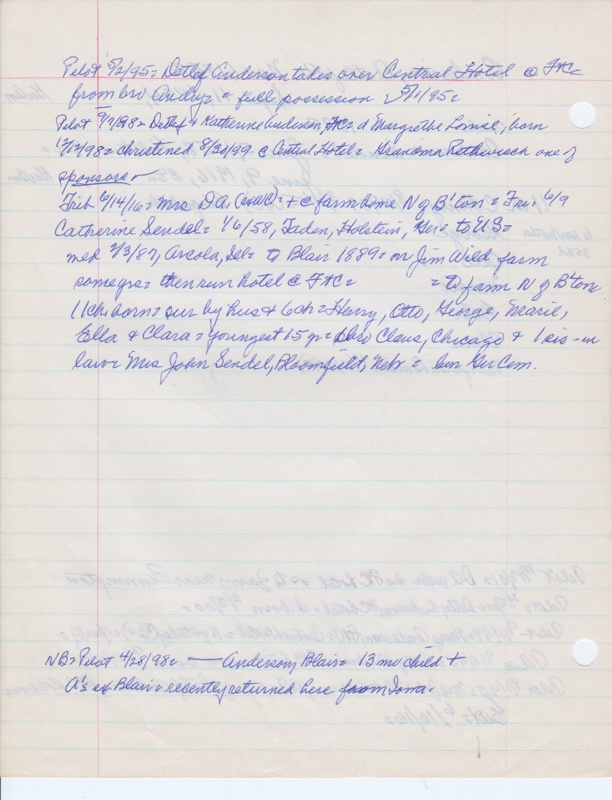 Pilot 5/2/95 = Detlef Anderson takes over Central Hotel @ FtC=
from bro Andrew = full possession 5/1/95=
Pilot 9/7/98 = Detlef + Katherine Anderson, FtC = d Margrethe Louise, born
12/17/98 = christened 8/20/99 @ Central Hotel = Grandma Rethwisch one of
sponsors
Trib 6/14/16 = Mrs D A. + @ farm home N of B'ton = Fri. 6/9
Catherine Sendel = 1/6/58, Faden, Holstein, Here to US =
med 2/3/87, Avoca, = to Blair 1889 = on Jim Wild farm
some yrs = then run hotel @ FtC = = to farm N of B'ton
11 ch born = sur by hus + 6 ch = Henry, Otto, George, Marie,
Ella & Clara = youngest 15 yr = bro Claus, Chicago + 1 sis-in
law = Mrs John Sendel, Bloomfield, Nebr = bur Ger Cem.
NB = Pilot 4/28/98 = — Anderson, Blair = 13 mo child +
A's of Blair = recently returned here from Iowa.